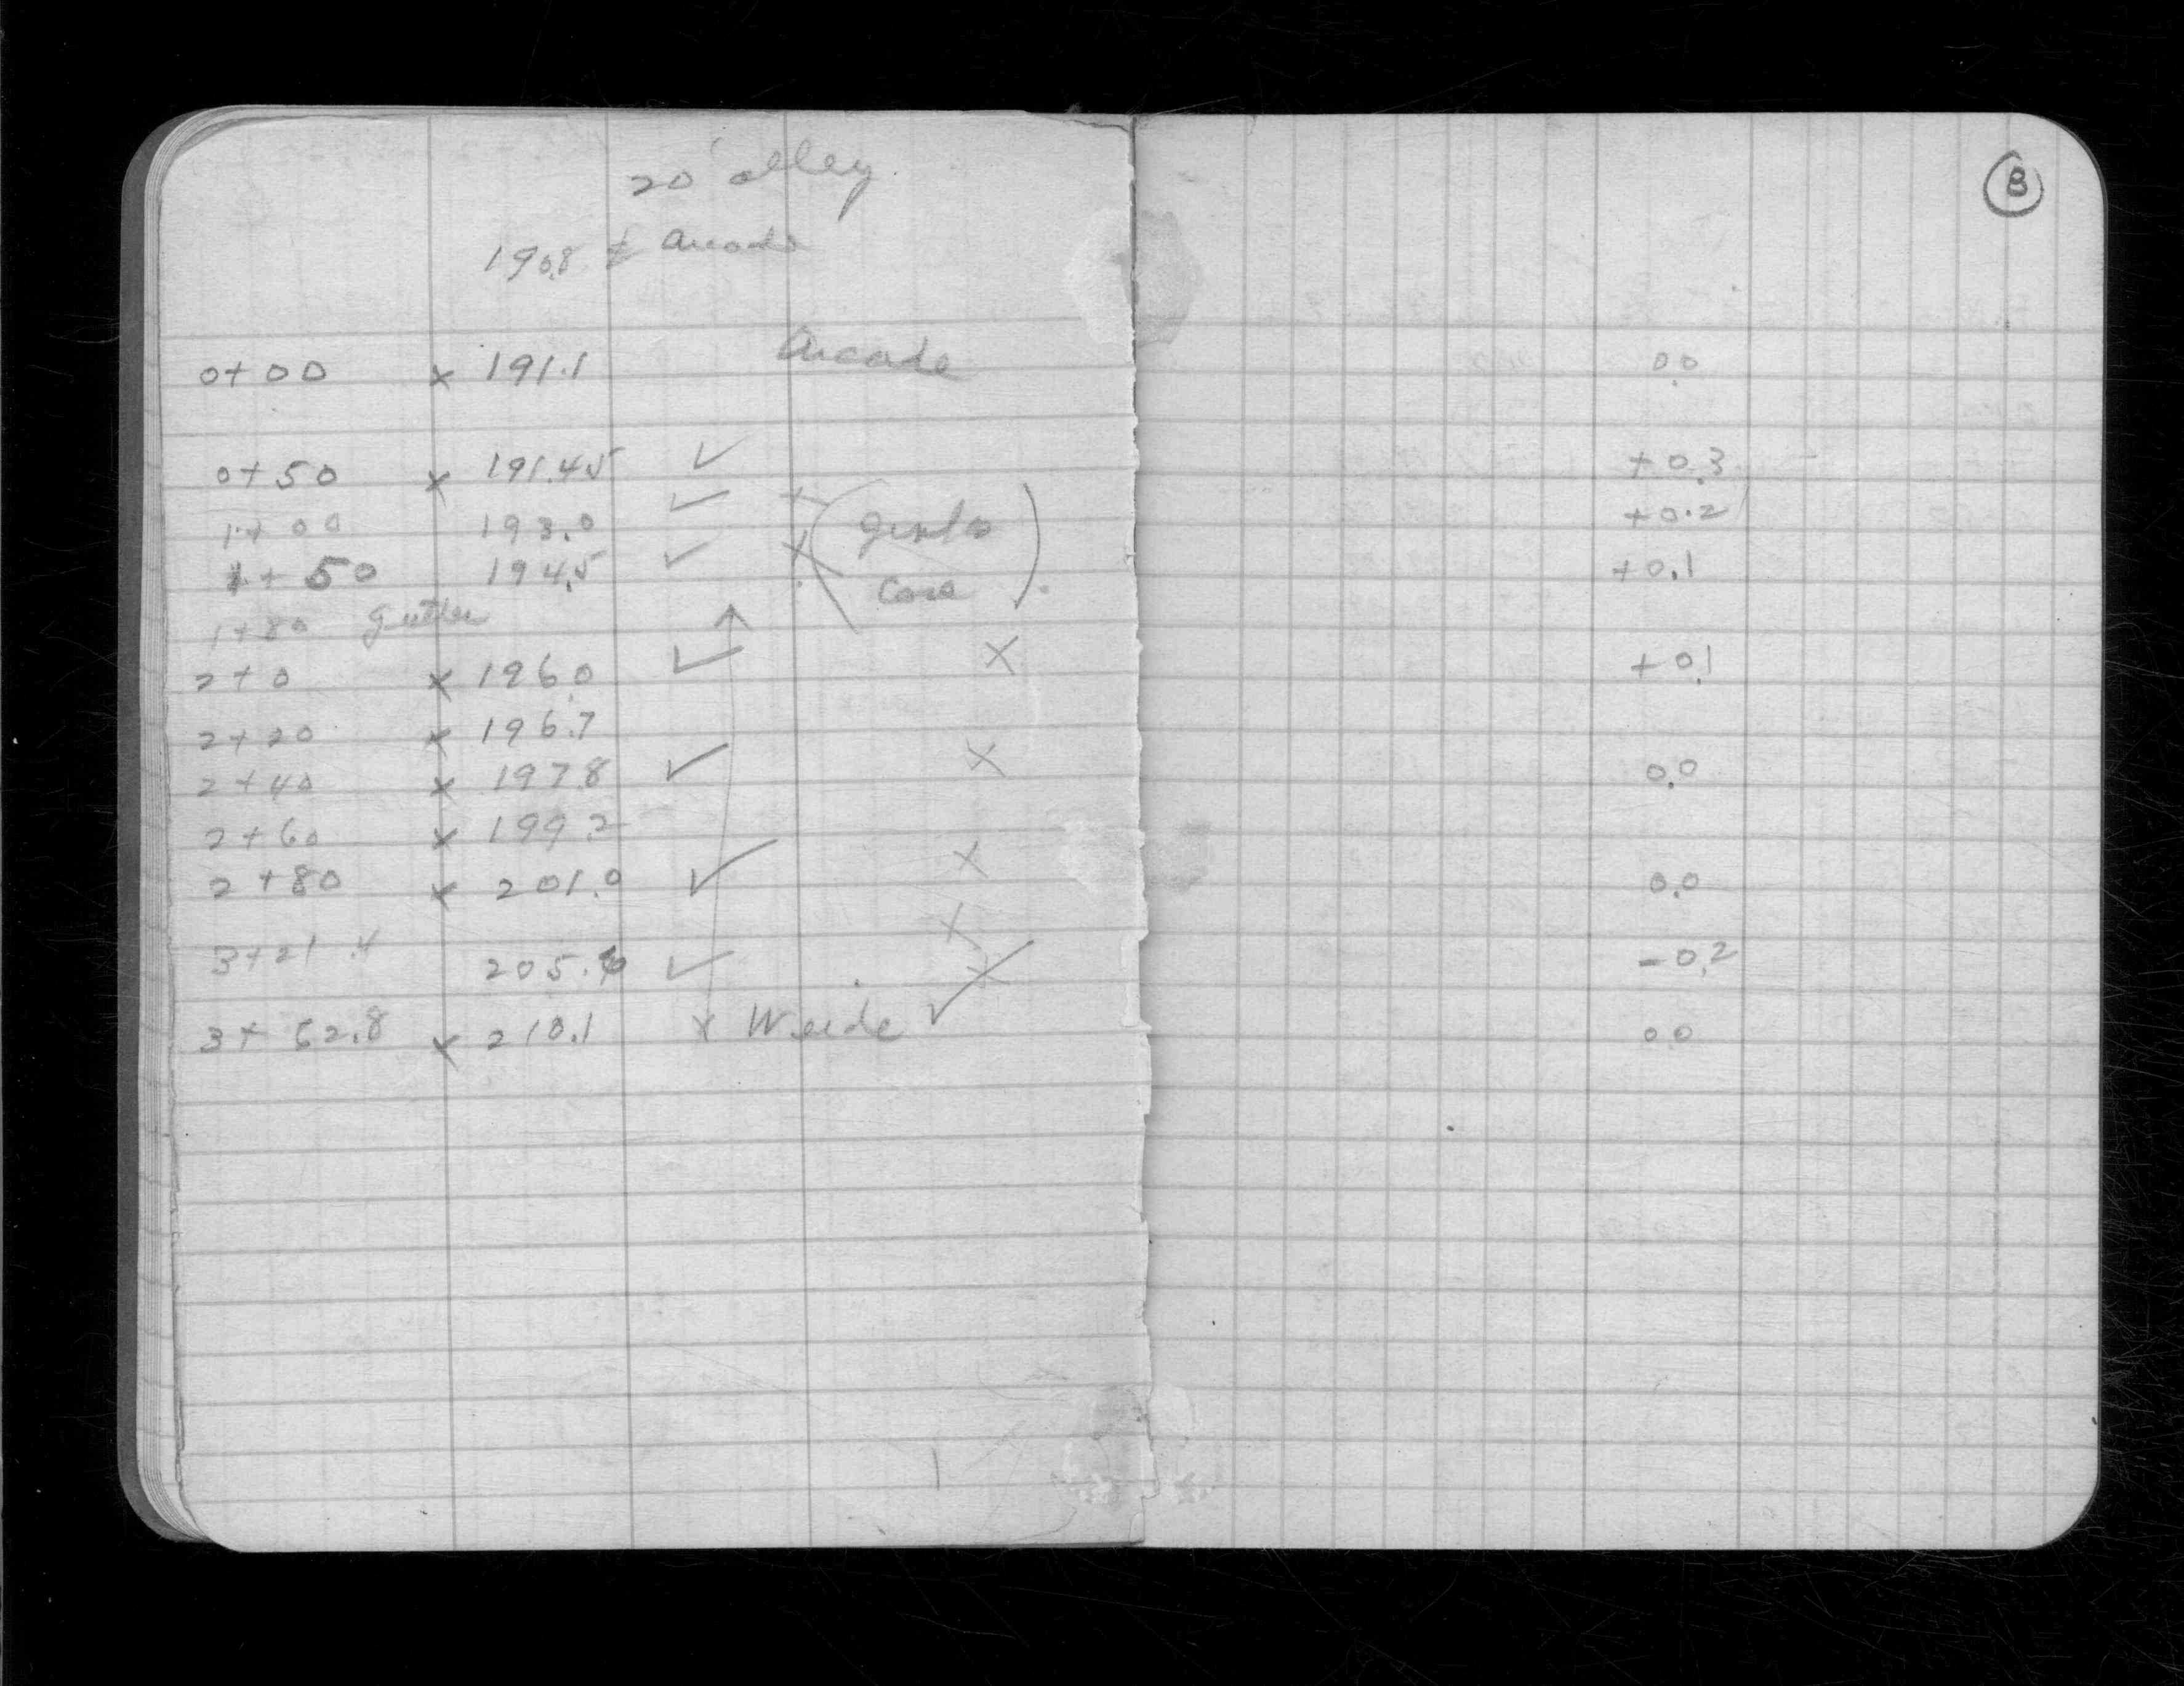 20' alley
190.8 Arcade
0+00 x 191.1 Arcade 0.0
0+50 x 191.45 ✓ +0.3
1+00 193.0 ✓ +0.2
1+50 194.5 ✓ x +0.1
1+80 gutter
2+0 x 196.0 ✓ x +0.1
2+20 x 196.7
2+40 x 197.8 ✓ x 0.0
2+60 x 199.2
2+80 x 201.0 ✓ x 0.0
3+21.4 205.6 ✓ x -0.2
3+62.8 x 210.1 x Weide ✓ 0.0